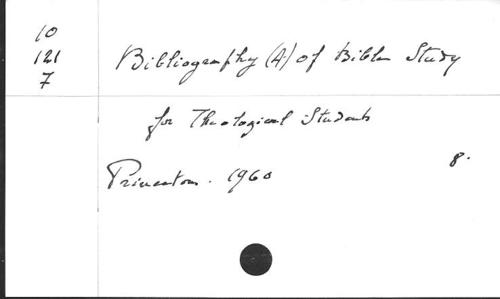 10
121
7
Bibliography (A) of Bible Study
for Theological Students
Princeton. 1960
8.